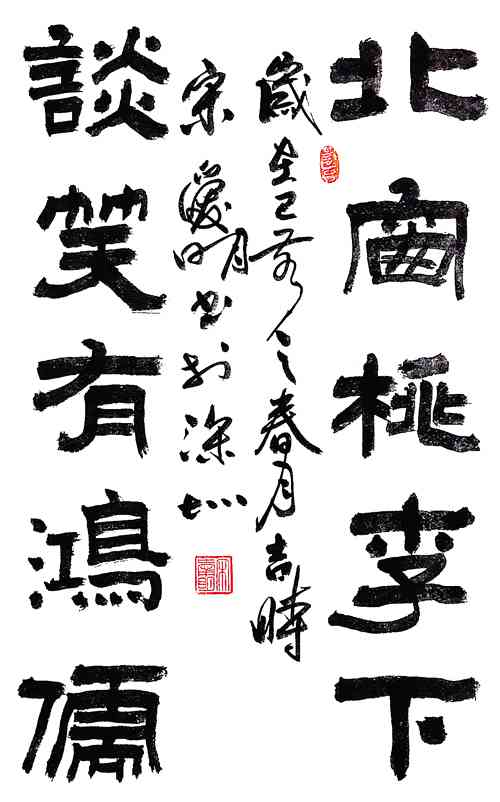 北窗桃李下
歲在己亥之春月吉時
宋愛明書於深圳
談笑有鴻儒